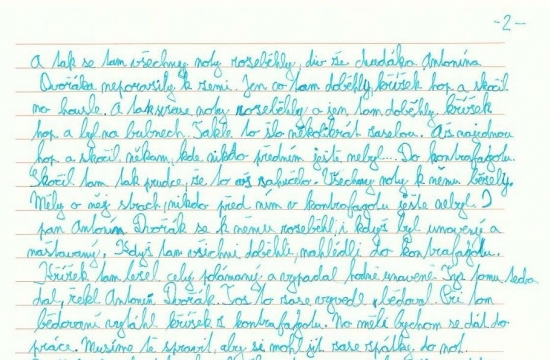 -2-
A tak se tam všechny noty rozeběhly, div že chudáka Antonína
Dvořáka neporazily k zemi. Jen co tam doběhly, křížek hop a skočil
na housle. A tak zase noty rozeběhly a jen tam doběhly, křížek
hop a byl na bubnech. Takle to šlo několikrát za sebou. Až najednou
hop a skočil někam, kde nikdo předním ještě nebyl... Do kontrafagotu.
Skočil tam tak prudce, že to až zapučelo. Všechny noty k němu běžely.
Měly o něj strach, nikdo před ním v kontrafagotu ještě nebyl. I
pan Antonín Dvořák se k němu rozeběhl, i když byl unavený a
naštvaný. Když tam všichni doběhli, nahlédli do kontrafagotu.
Křížek tam ležel celý polámaný a vypadal hodně unaveně. Tys tomu teda
dal, řekl Antonín Dvořák. Tos to zase vyvedl, bědoval. Při tom
bědování vytáhl křížek z kontrafagotu. No měli bychom se dát do
práce. Musíme tě spravit, aby si mohl jít zase zpátky do not.